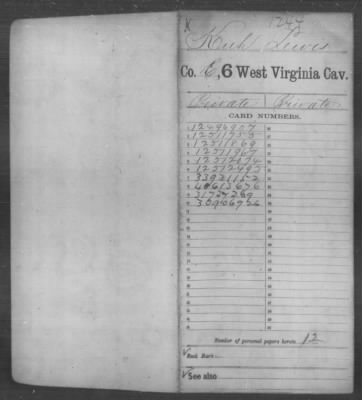 K 1244
Kuhl Lewis
Co. E, 6 West Virginia Cav.
Private Private
CARD NUMBERS.
12496907
12511753
12511869
12511967
12512074
12512497
33921152
40613676
31724289
30906926
Number of personal papers herein 12
Book Mark:
See also